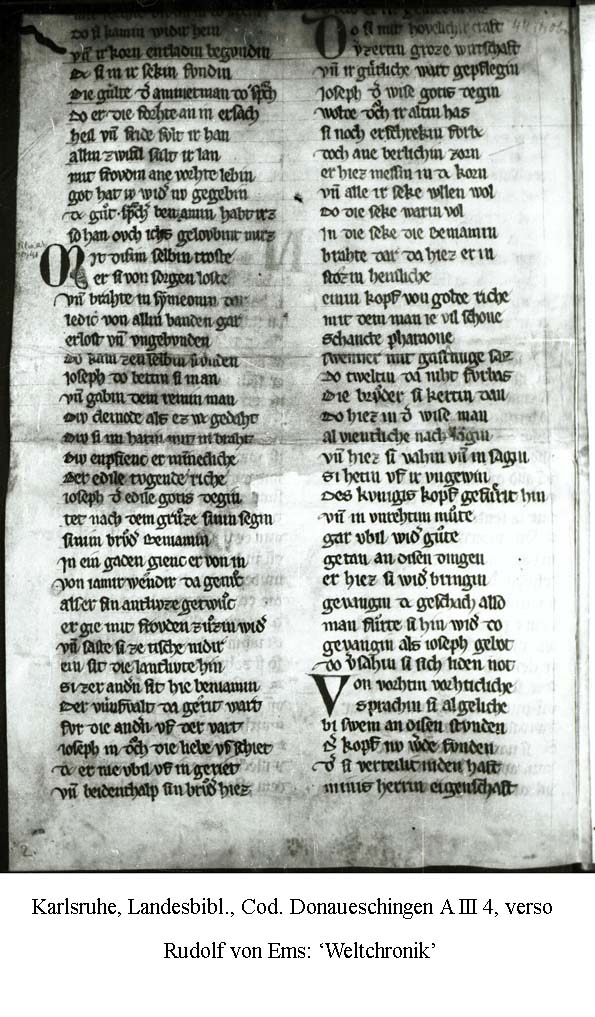 do si kamin widir hein
vñ ir korn entladin begondin
do si in ir sekin fondin
Die gúlte d᷎ ammetman do sp᷎ch
do er die forhte an in ersach
heil vñ fride súlt ir han
allin zwifil sult ir lan
mit froudin ane vorhte lebin
got hat iv wid᷎ nv gegebin
dc gůt sp᷎ch beniamin habt irz
so han ovch ichs gelovbint mirz
Mit disim selbin troste
er si von sorgen loste
vñ brahte in symeonin dar
ledic von allin banden gar
erlost vñ vngebvnden
do kam zen selbin stvnden
ioseph do bettin si man
vñ gabin dem reinin man
div cleinode als ez w᷎ gedaht
div si im hattin mit in braht
div enpfienc er minnecliche
der edile tvgende riche
ioseph d᷎ edile gotis degin
tet nach dem grůze sinin segin
sinim brůd᷎ beniamin
in ein gaden gienc er von in
von iamir weinder da genůc
als er sin antlvze getwůc
er gie mit frovden zů zim wid᷎
vñ saste si ze tische nidir
ein sit die lantlvte hin
si zer andn᷎ sit hie beniamin
der vúnfvalt da gerit wart
fvr die andn᷎ vf der vart
ioseph in doch die liebe vf schiet
dc er nie vbil vf in geriet
vñ beidenthalp sin brůd᷎ hiez
Do si mit hovelichir craft
vzertin groze wirtschaft
vñ ir gůtliche wart gepflegin
ioseph d᷎ wise gotis degin
wolte doch ir altin has
si noch erschrekin fvrbz
doch ane berlichin zorn
er hiez messin in dc korn
vñ alle ir seke vllen wol
do die seke warin vol
in die seke die beniamin
brahte dar da hiez er in
stozin heinliche
einin kopf von golde riche
mit dem man ie vil schone
schancte pharaone
swenner mit gastunge saz
do tweltin da niht fvrbas
die brůder si kertin dan
do hiez in d᷎ wise man
al vientliche nach iagin
vñ hiez si vahin vñ in sagin
si hetin vf ir vngewin
des kvnigis kopf gefůrit hin
vñ in vnrehtim můte
gar vbil wid᷎ gůte
getan an disen dingen
er hiez si wid᷎ bringin
gevangin dc geschach also
man fůrte si hin wid᷎ do
gevangin als ioseph gebot
do v᷎sahin si sich liden not
Von vorhtin vorhtcliche
sprachin si al geliche
bi swem an disen stvnden
d᷎ kopf nv w᷎de fvnden
d᷎ si verteilt in den haft
minis herrin eigenschaft
2.
Karlsruhe, Landesbibl., Cod. Donaueschingen A III 4, verso
Rudolf von Ems: ‘Weltchronik’